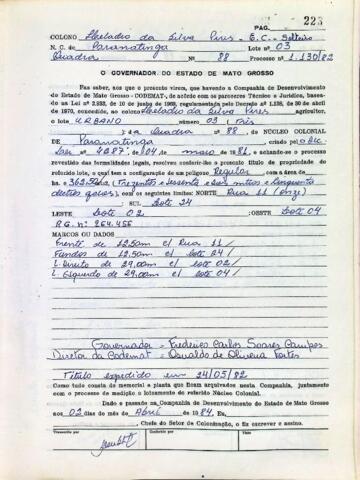 PAG. 223
COLONO Heladio da Silva Pires - E.C. Solteiro
N. C. de Paranatinga Lote nº 03
Quadra Nº 88 Processo nº 1.130/82
O GOVERNADOR DO ESTADO DE MATO GROSSO
Faz saber, aos que o presente virem, que havendo a Companhia de Desenvolvimento
do Estado de Mato Grosso - CODEMAT, de acordo com os pareceres Técnico e Jurídico, basea-
da na Lei nº 2.233, de 10 de junho de, regulamentada pelo Decreto nº 1.138, de 30 de abril
de 1970, concedido, ao colono Heladio da Silva Pires agricultor,
o lote URBANO número 03 (três
) da Quadra nº 88, do NÚCLEO COLONIAL
DE Paranatinga criado pelo
nº 2287, de maio de 1986, e achando-se o processo
revestido das formalidades legais, resolveu conferir-lhe o presente título de propriedade do
referido lote, o qual tem a configuração de um polígono Regular com a área de
hs. 362,50 (Trezentos e sessenta e dois mtos e cinquenta
), com os seguintes limites: NORTE Rua 11 (onze)
; SUL Lote 24
LESTE Lote 02 ; OESTE Lote 04
R.G. nº 264.455
MARCOS OU DADOS
Frente de 12,50m c/ Rua 11/
Fundos de 12,50m c/ lote 24/
L. Direito de 29,00m c/ lote 02/
L. Esquerdo de 29,00m c/ lote 04/
Governador - Frederico Carlos Soares Campos
Diretor da Codemat - Osvaldo de Oliveira Fortes
Título expedido em 24/05/82
Como tudo consta do memorial e planta que ficam arquivados nesta Companhia, juntamente
com o processo de medição e loteamento do referido Núcleo Colonial.
Dado e passado na Companhia de Desenvolvimento do Estado de Mato Grosso
aos 02 dias do mês de Abril de 1984, Eu,
Chefe do Setor de Colonização, o fiz escrever e assino.
Transcrito por
Conferido por
Visto